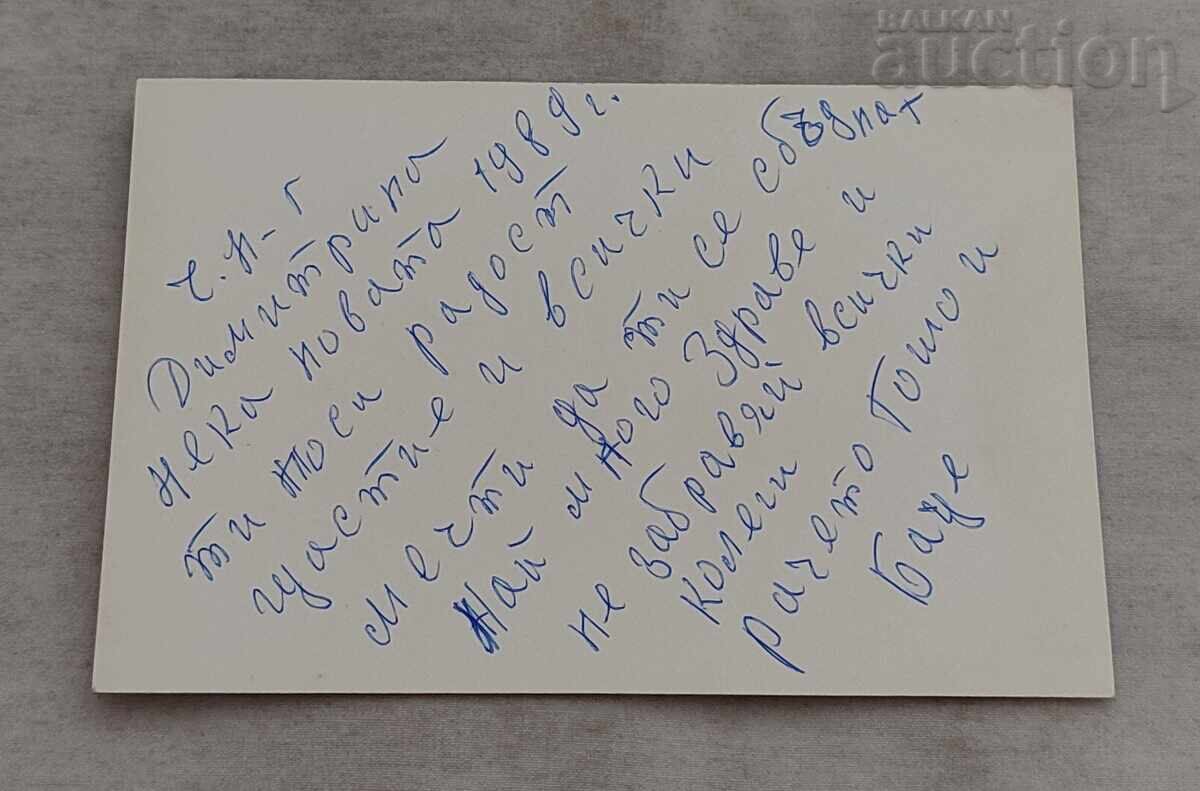 BALKAN
auction
Ч.Н-Г
Димитрина
нека новата 1989 г.
ти носи радост
щастие и всички
мечти да ти се сбъднат
Най много здраве и
не забравяй всички
колеги
рачето Гошо и
Баце